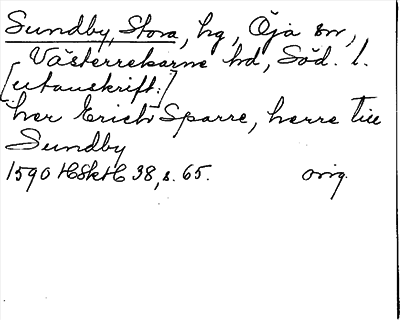 Sundby, Stora, hg, Öja sn,
Västerrekarne hd, Söd. l.
[utanskrift:]
her Erich Sparre, herre till
Sundby
1590 HSkH 38, s. 65. orig.